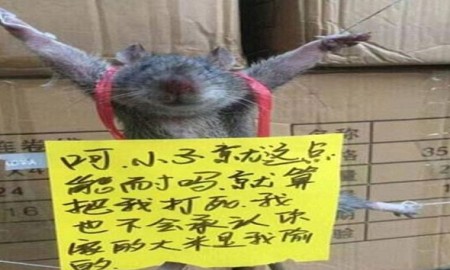 呵.小子就这点
能耐吗.就算
把我打死.我
也不会承认你
家的大米是我偷
的.
名称
格
35
24
16